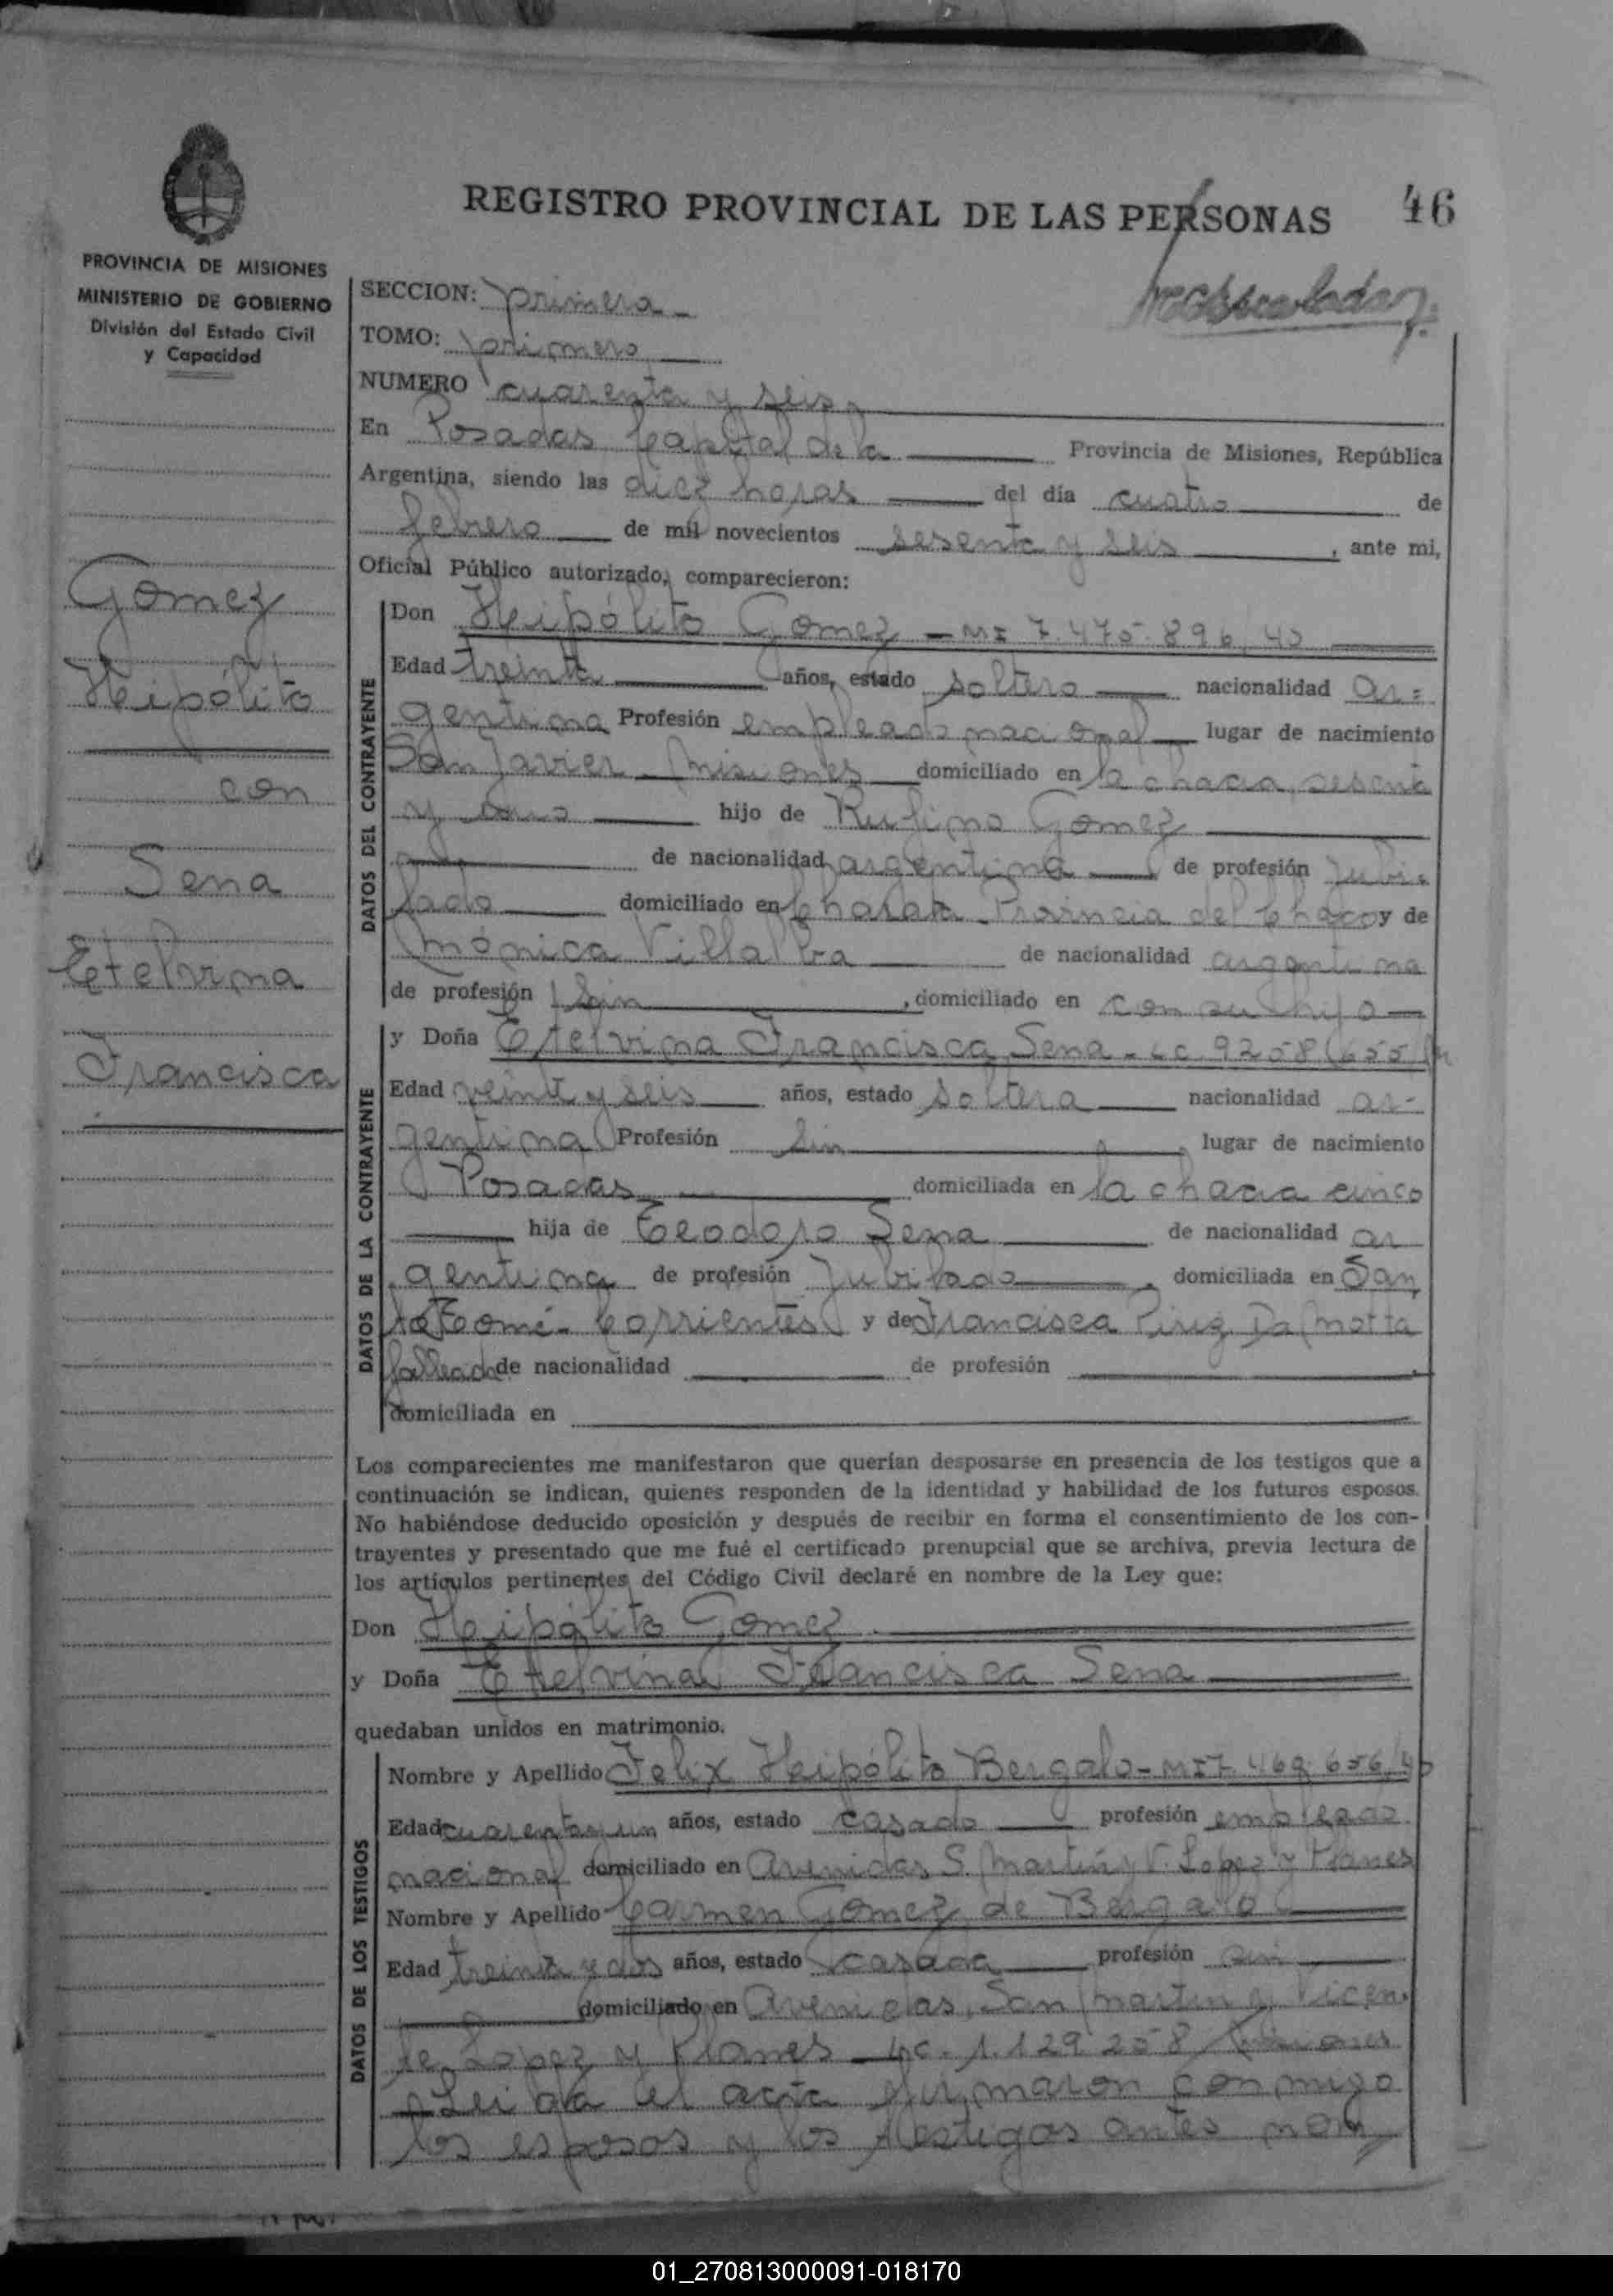 REGISTRO PROVINCIAL DE LAS PERSONAS 46
PROVINCIA DE MISIONES
MINISTERIO DE GOBIERNO
División del Estado Civil
y Capacidad
Gomez
Heipólito
con
Sena
Etelvina
Francisca
SECCION: primera
TOMO: primero
NUMERO cuarenta y seis
En Posadas Capital de la Provincia de Misiones, República
Argentina, siendo las diez horas del día cuatro de
febrero de mil novecientos sesenta y seis, ante mi,
Oficial Público autorizado, comparecieron:
DATOS DEL CONTRAYENTE
Don Heipólito Gomez - MI 7.475.896,
Edad treinta años, estado soltero nacionalidad ar=
gentina Profesión empleado nacional lugar de nacimiento
San Javier Misiones domiciliado en la chacra sesenta
y hijo de Rufino Gomez
de nacionalidad argentina de profesión Jubi=
lado domiciliado en Charata Provincia del Chaco y de
Mónica Villalba de nacionalidad argentina
de profesión sin, domiciliado en con su hijo
DATOS DE LA CONTRAYENTE
y Doña Etelvina Francisca Sena - LC 9258655
Edad veinte y seis años, estado soltera nacionalidad ar-
gentina Profesión sin, lugar de nacimiento
Posadas domiciliada en la chacra cinco
hija de Teodoro Sena de nacionalidad ar
gentina de profesión Jubilado, domiciliada en San
ta Tomé - Corrientes y de Francisca Da Motta
de nacionalidad de profesión
domiciliada en
Los comparecientes me manifestaron que querían desposarse en presencia de los testigos que a
continuación se indican, quienes responden de la identidad y habilidad de los futuros esposos.
No habiéndose deducido oposición y después de recibir en forma el consentimiento de los con-
trayentes y presentado que me fué el certificado prenupcial que se archiva, previa lectura de
los artículos pertinentes del Código Civil declaré en nombre de la Ley que:
Don Heipólito Gomez
y Doña Etelvina Francisca Sena
quedaban unidos en matrimonio.
DATOS DE LOS TESTIGOS
Nombre y Apellido Felix Heipólito Bergalo - MI 7.469.656
Edad cuarenta y un años, estado casado profesión empleado
nacional domiciliado en Avenidas S. Martin y V. Lopez y Planes
Nombre y Apellido Carmen Gomez de Bergalo
Edad treinta y dos años, estado casada profesión sin
domiciliado en Avenidas San Martin y Vicen=
te Lopez y Planes - LC. 1.129.258
Leida el acta firmaron conmigo
los esposos y los testigos antes nom
01_270813000091-018170